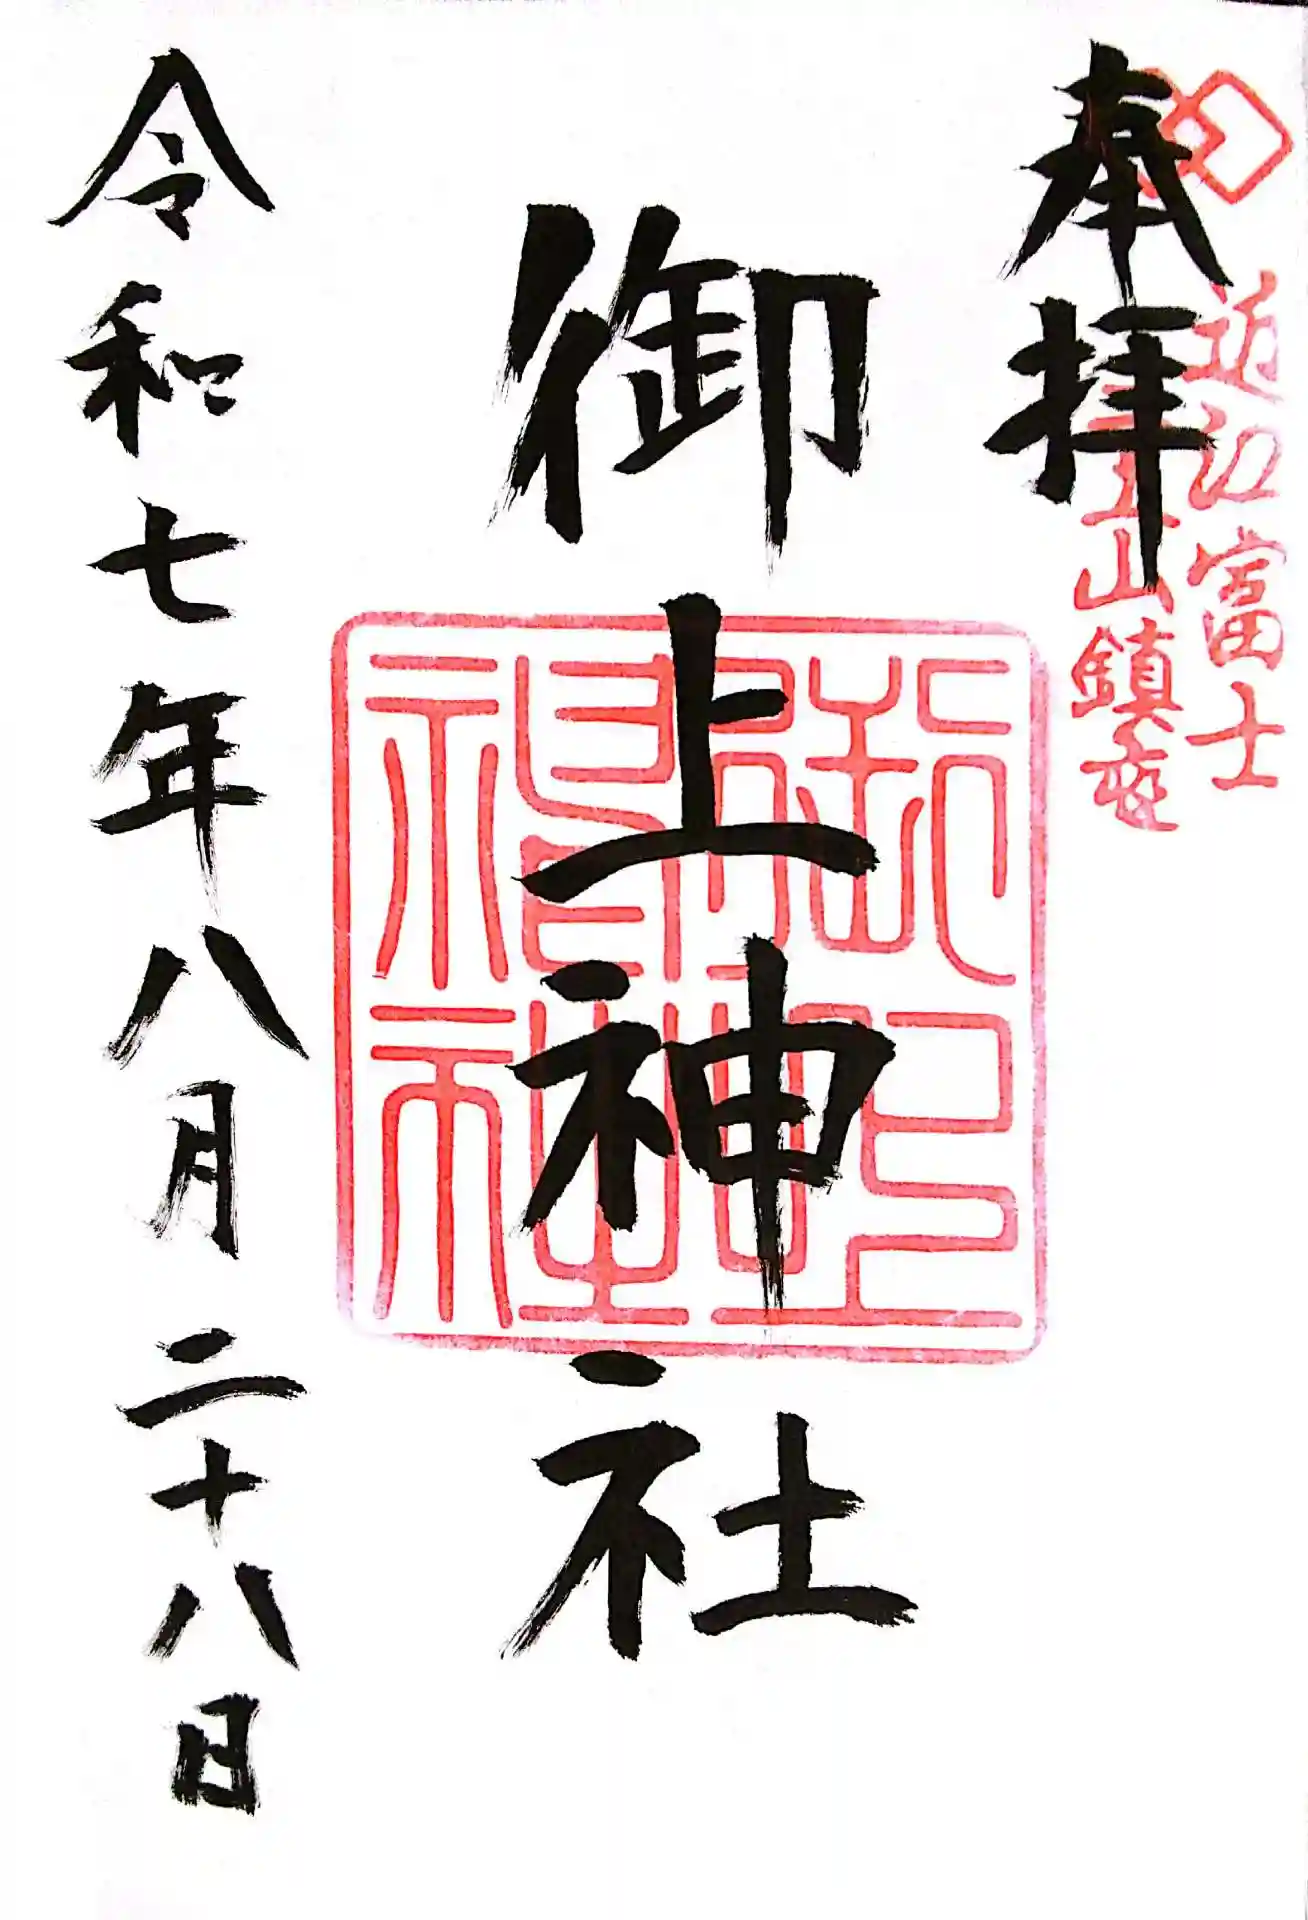 奉拝
近江富士
三上山鎮座
御上神社
御上神社印
令和七年八月二十八日